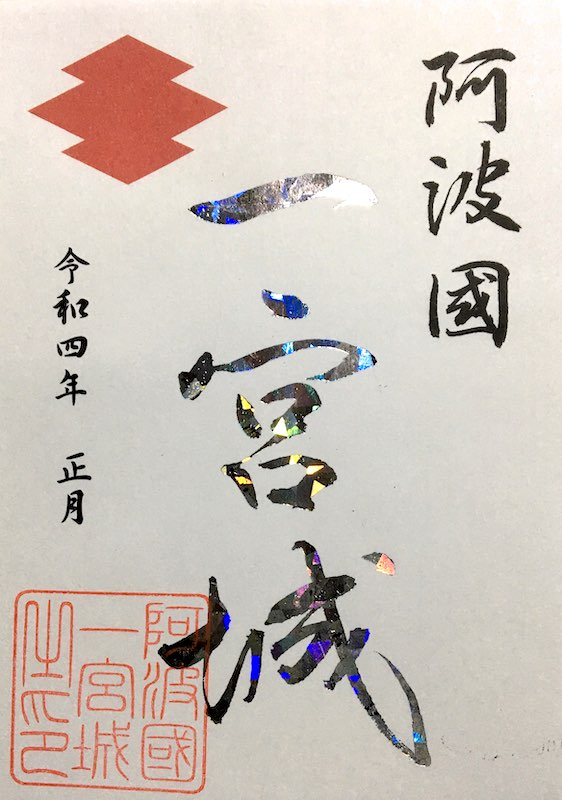 阿波國
一宮城
令和四年 正月
阿波國
一宮城
之印